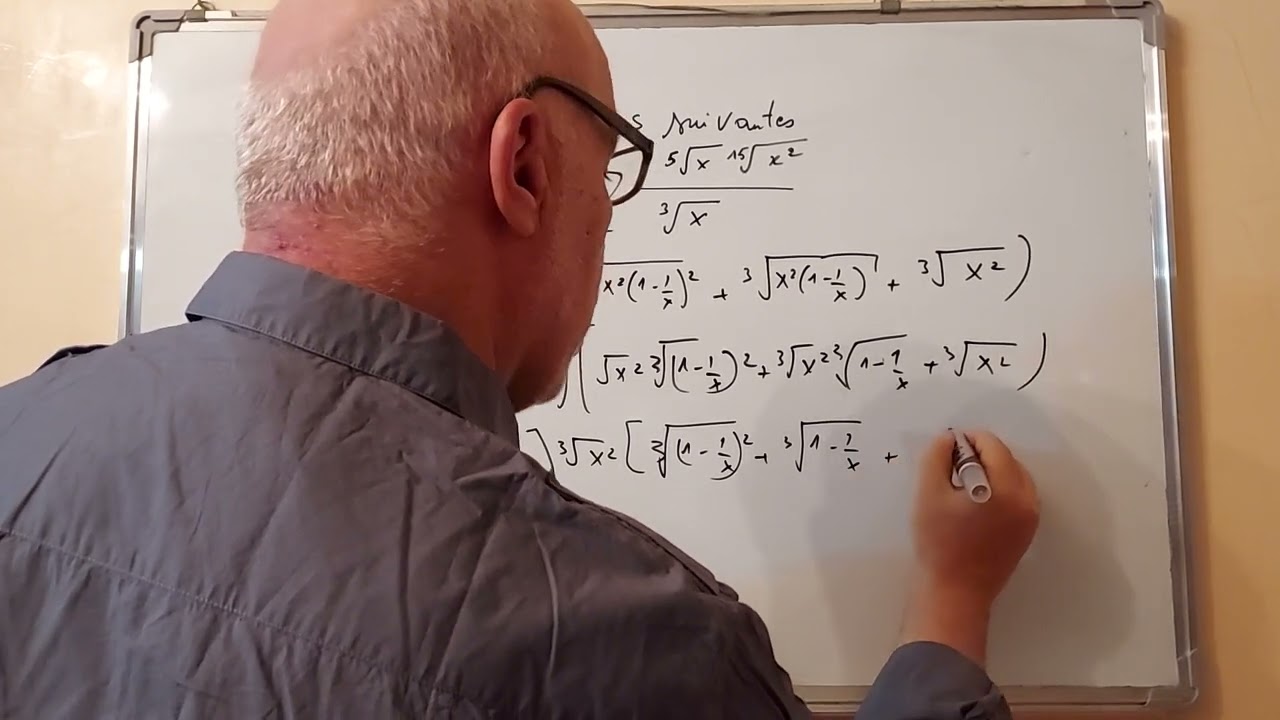 s suivantes
⁵√x ¹⁵√x²
³√x
x²(1-1/x)² + ³√x²(1-1/x) + ³√x² )
( √x² ³√(1-1/x)² + ³√x² ³√1-1/x + ³√x² )
] ³√x² [ ³√(1-1/x)² + ³√1-1/x +